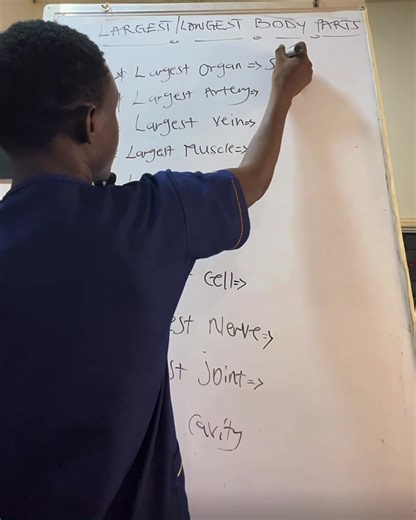 LARGEST/LONGEST BODY PARTS
* Largest Organ => S
* Largest Artery=>
Largest Vein=>
Largest Muscle=>
Cell=>
Nerve=>
joint=>
Cavity